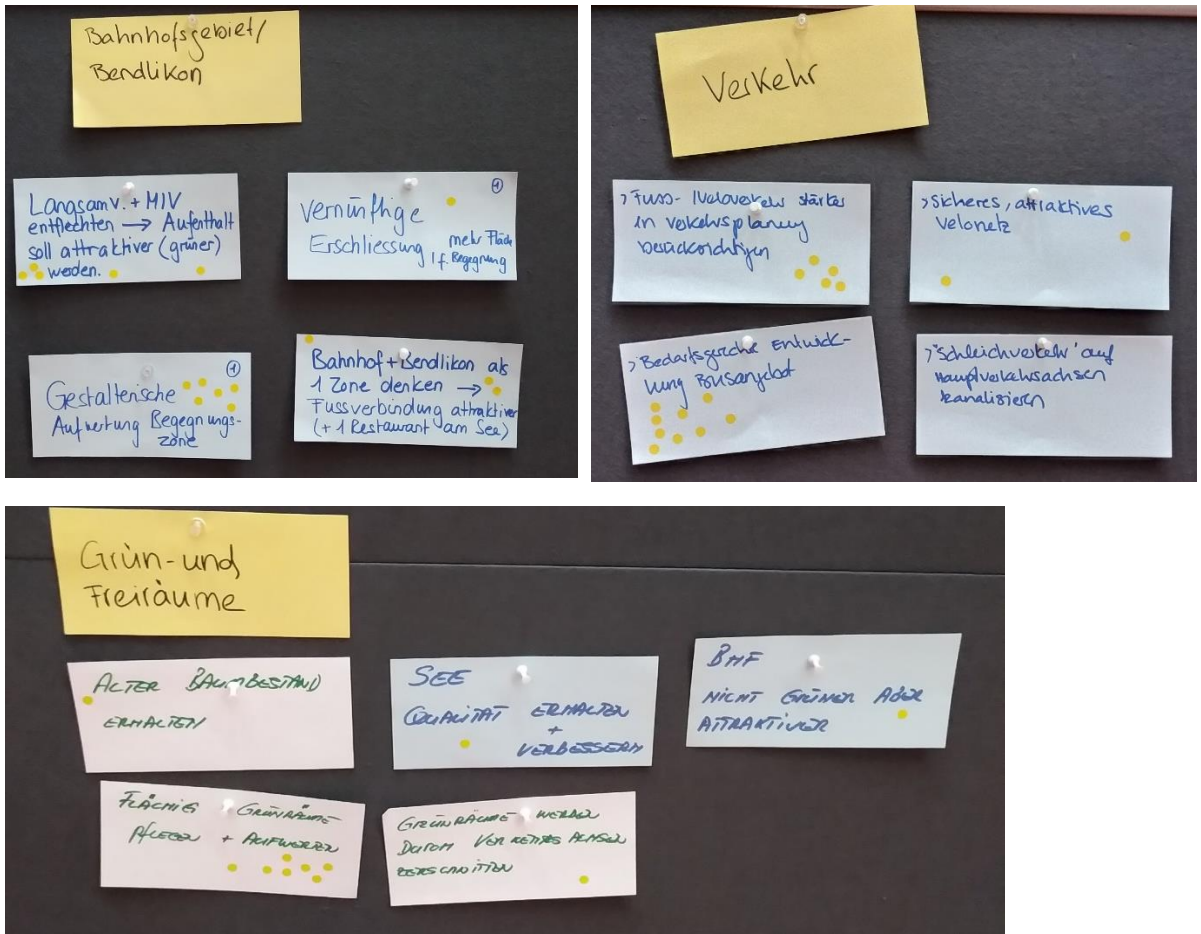 Bahnhofsgebiet/
Bendlikon
Langsamv. + MIV
entflechten → Aufenthalt
soll attraktiver (grüner)
werden.
1
Vernünftige
Erschliessung
mehr Fläche
f. Begegnung
1
Gestalterische
Aufwertung Begegnungs-
zone
Bahnhof + Bendlikon als
1 Zone denken →
Fussverbindung attraktiver
(+ 1 Restaurant am See)
Verkehr
> Fuss- /Veloverkehr stärker
in verkehrsplanung
berücksichtigen
> Sicheres, attraktives
Velonetz
> Bedarfsgerechte Entwick-
lung Busangebot
> "Schleichverkehr" auf
Hauptverkehrsachsen
kanalisieren
Grün- und
Freiräume
ALTER BAUMBESTAND
ERHALTEN
SEE
QUALITÄT ERHALTEN
+
VERBESSERN
BHF
NICHT GRÜNER ABER
ATTRAKTIVER
FLÄCHIG GRÜNRÄUME
PFLEGEN + AUFWERTEN
GRÜNRÄUME WERDEN
DURCH VERKEHRSACHSEN
ZERSCHNITTEN